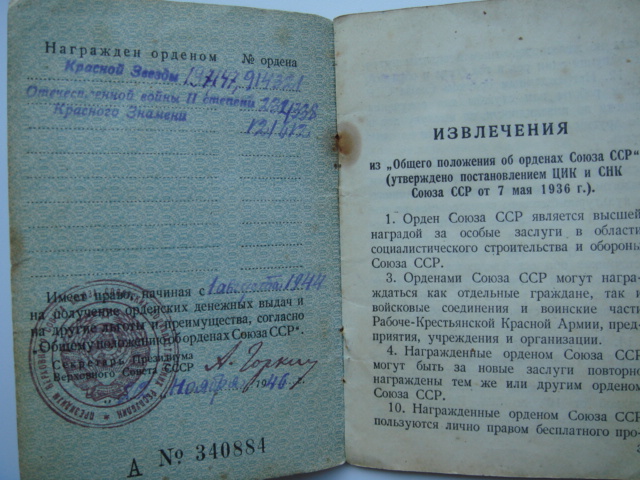 Награжден орденом № ордена
Красной Звезды
Отечественной войны II степени
Красного Знамени
Имеет право, начиная с 1 августа 1944
на получение орденских денежных выдач и
на другие льготы и преимущества, согласно
„Общему положению об орденах Союза ССР".
Секретарь Президиума
Верховного Совета СССР А. Горкин
ноября 1946 г.
А № 340884
ИЗВЛЕЧЕНИЯ
из „Общего положения об орденах Союза ССР"
(утверждено постановлением ЦИК и СНК
Союза ССР от 7 мая 1936 г.).
1. Орден Союза ССР является высшей
наградой за особые заслуги в области
социалистического строительства и обороны
Союза ССР.
3. Орденами Союза ССР могут награ-
ждаться как отдельные граждане, так
войсковые соединения и воинские части
Рабоче-Крестьянской Красной Армии, пред-
приятия, учреждения и организации.
4. Награжденные орденом Союза ССР
могут быть за новые заслуги повторно
награждены тем же или другим орденом
Союза ССР.
10. Награжденные орденом Союза ССР
пользуются лично правом бесплатного про-